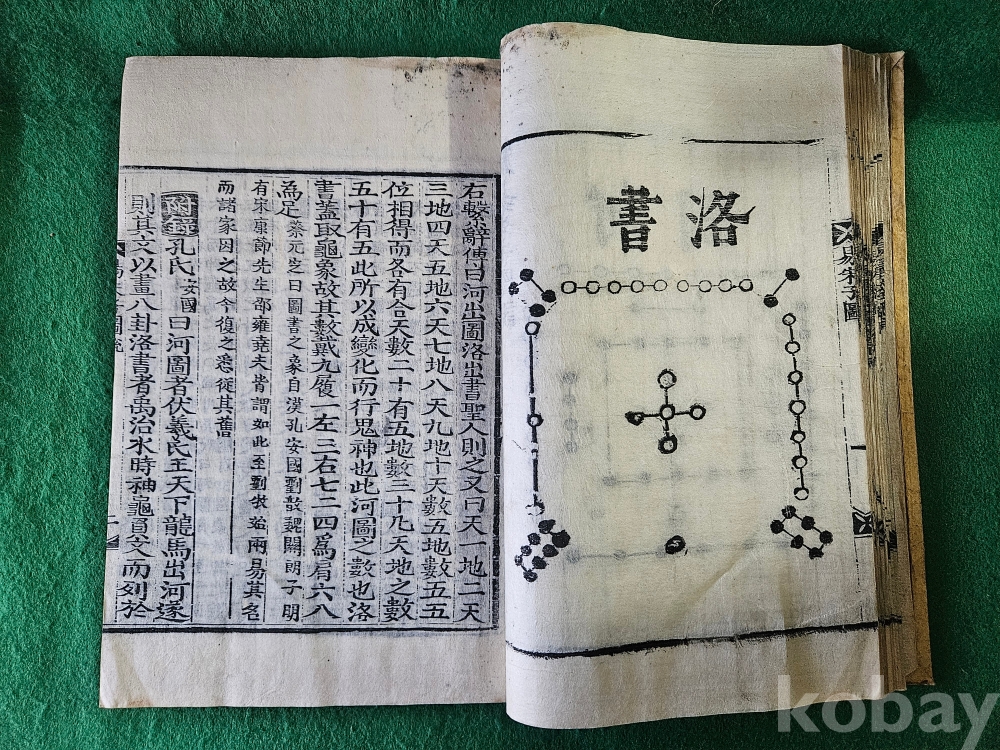 易朱子圖
一
洛書
右繫辭傳曰河出圖洛出書聖人則之又曰天一地二天
三地四天五地六天七地八天九地十天數五地數五五
位相得而各有合天數二十有五地數三十凡天地之數
五十有五此所以成變化而行鬼神也此河圖之數也洛
書蓋取龜象故其數戴九履一左三右七二四爲肩六八
爲足蔡元定曰圖書之象自漢孔安國劉歆魏關朗子明
有宋康節先生邵雍堯夫皆謂如此至劉牧始兩易其名
而諸家因之故今復之悉從其舊
附錄孔氏安國曰河圖者伏羲氏王天下龍馬出河遂
則其文以畫八卦洛書者禹治水時神龜負文而列於
kobay